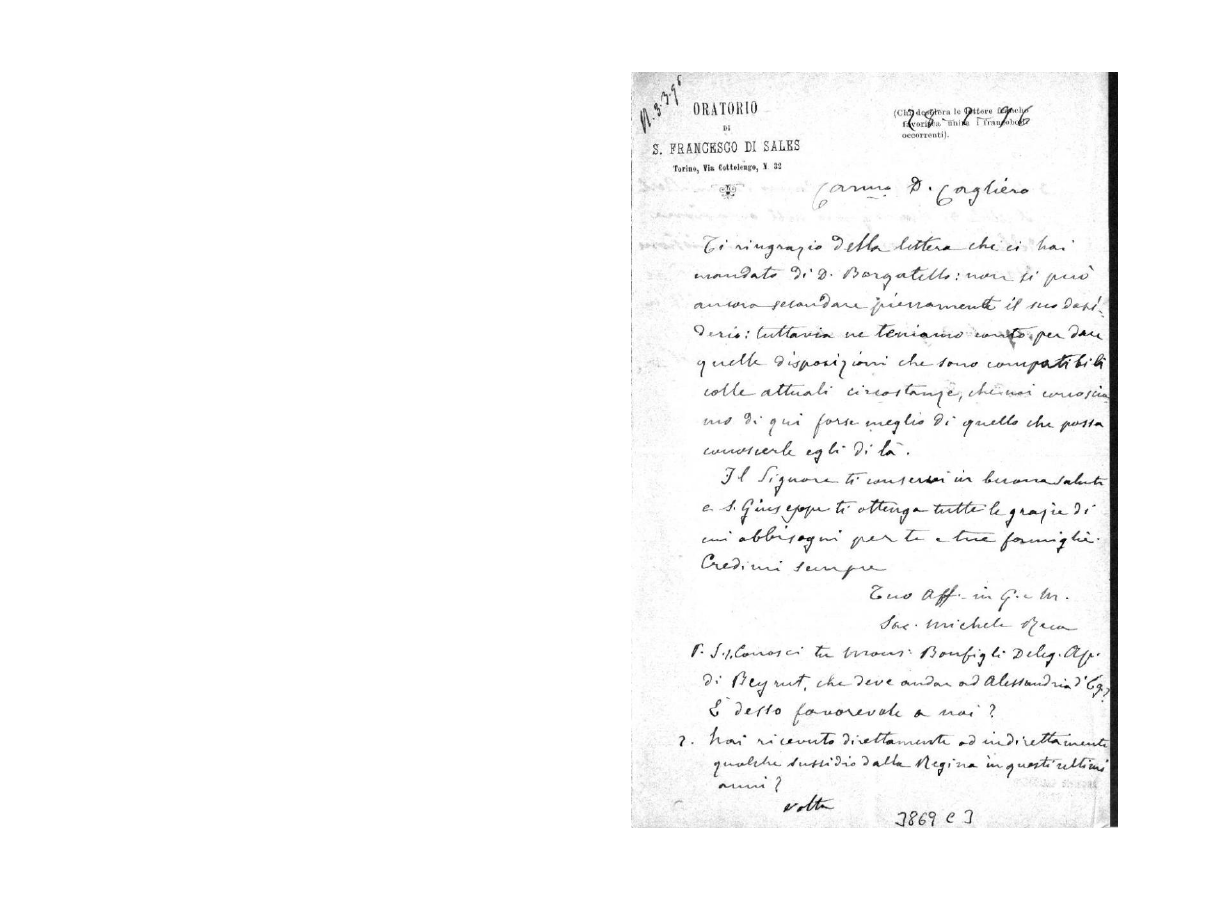 N. 3.3.96
ORATORIO
DI
S. FRANCESCO DI SALES
Torino, Via Cottolengo, N. 32
(Chi desidera le lettere franche
favorisca unire i francobolli
occorrenti).
28-2-96
Carmo D. Cagliero
Ti ringrazio della lettera che ci hai
mandato di D. Borgatello: non si può
ancora secondare pienamente il suo desi-
derio: tuttavia ne teniamo conto per dare
quelle disposizioni che sono compatibili
colle attuali circostanze, che noi conoscia
mo di qui forse meglio di quello che possa
conoscerle egli di là.
Il Signore ti conservi in buona salute
e S. Giuseppe ti ottenga tutte le grazie di
cui abbisogni per te e tue famiglie.
Credimi sempre
Tuo Aff. in G. e M.
Sac. Michele Rua
P. S. 1. Conosci tu Mons. Bonfigli Deleg. Ap.
di Beyrut, che deve andar ad Alessandria d'Eg.?
È desso favorevole a noi?
2. hai ricevuto direttamente od indirettamente
qualche sussidio dalla Regina in questi ultimi
anni?
volta
3869 C 3